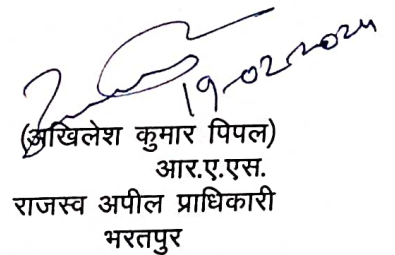 19-02-2024
(अखिलेश कुमार पिपल)
आर.ए.एस.
राजस्व अपील प्राधिकारी
भरतपुर